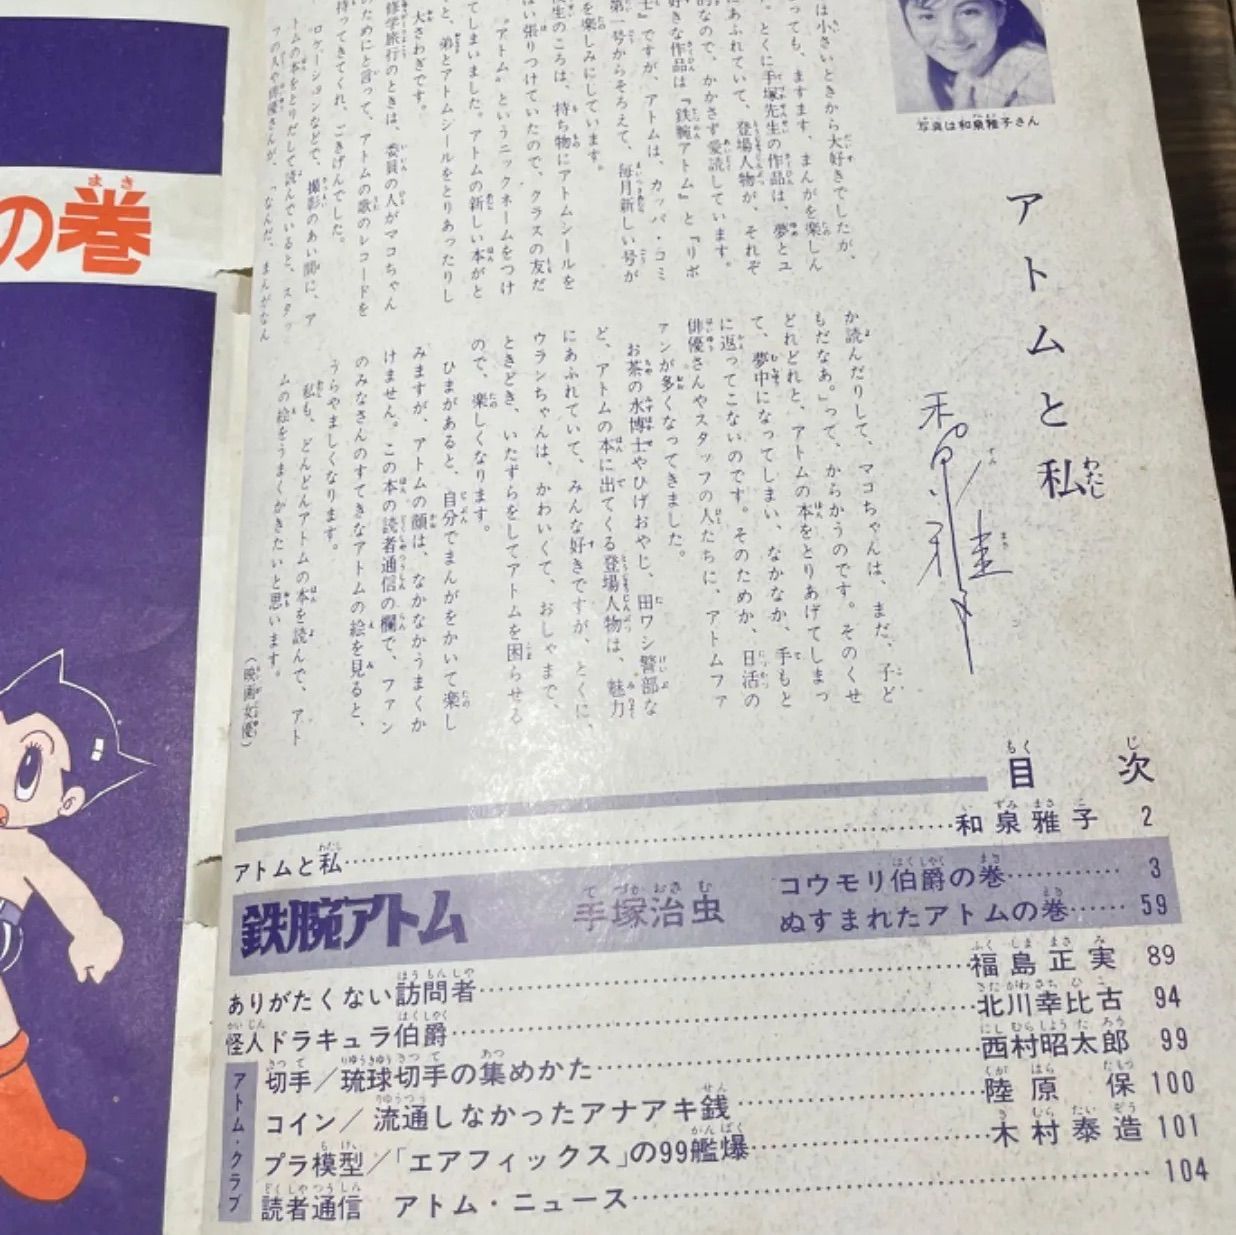 の巻
まき
写真は和泉雅子さん
アトムと私
わたし
は小さいときから大好きでしたが、
っても、ますます、まんがを楽しん
。とくに手塚先生の作品は、夢とユ
にあふれていて、登場人物が、それぞ
的なので、かかさず愛読しています。
好きな作品は『鉄腕アトム』と『リボ
士』ですが、アトムは、カッパ・コミ
第一号からそろえて、毎月新しい号が
を楽しみにしています。
生のころは、持ち物にアトムシールを
ばい張りつけていたので、クラスの友だ
『アトム』というニックネームをつけ
てしまいました。アトムの新しい本がと
と、弟とアトムシールをとりあったりし
大さわぎです。
修学旅行のときは、委員の人がマコちゃん
のためにと言って、アトムの歌のレコードを
持ってきてくれ、ごきげんでした。
ロケーションなどで、撮影のあい間に、ア
トムの本をとりだして読んでいると、スタッ
フの人や俳優さんが、「なんだ、まんがなん
か読んだりして、マコちゃんは、まだ、子ど
もだなあ。」って、からかうのです。そのくせ
どれどれと、アトムの本をとりあげてしまっ
て、夢中になってしまい、なかなか、手もと
に返ってこないのです。そのためか、日活の
俳優さんやスタッフの人たちに、アトムファ
ァンが多くなってきました。
お茶の水博士やひげおやじ、田ワシ警部な
ど、アトムの本に出てくる登場人物は、魅力
にあふれていて、みんな好きですが、とくに、
ウランちゃんは、かわいくて、おしゃまで、
ときどき、いたずらをしてアトムを困らせる
ので、楽しくなります。
ひまがあると、自分でまんがをかいて楽し
みますが、アトムの顔は、なかなかうまくか
けません。この本の読者通信の欄で、ファン
のみなさんのすてきなアトムの絵を見ると、
うらやましくなります。
私も、どんどんアトムの本を読んで、アト
ムの絵をうまくかきたいと思います。
（映画女優）
目次
もく じ
アトムと私 和泉雅子 2
鉄腕アトム 手塚治虫 コウモリ伯爵の巻 3
ぬすまれたアトムの巻 59
ありがたくない訪問者 福島正実 89
怪人ドラキュラ伯爵 北川幸比古 94
アトム・クラブ
切手/琉球切手の集めかた 西村昭太郎 99
コイン/流通しなかったアナアキ銭 陸原保 100
プラ模型/「エアフィックス」の99艦爆 木村泰造 101
読者通信 アトム・ニュース 104